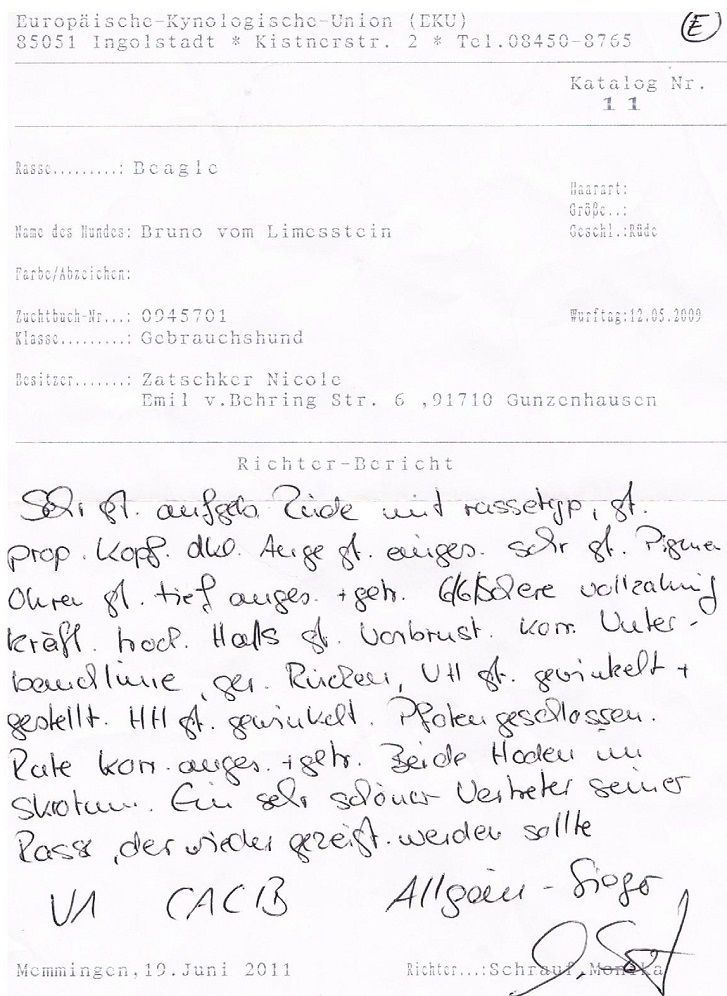 Europäische-Kynologische-Union (EKU)
E
85051 Ingolstadt * Kistnerstr. 2 * Tel.08450-8765
Katalog Nr.
11
Rasse.........: Beagle
Haarart:
Größe..:
Name des Hundes: Bruno vom Limesstein
Geschl.:Rüde
Farbe/Abzeichen:
Zuchtbuch-Nr...: 0945701
Wurftag:12.05.2009
Klasse.........: Gebrauchshund
Besitzer.......: Zatschker Nicole
Emil v.Behring Str. 6 ,91710 Gunzenhausen
Richter-Bericht
Sehr gt. aufgeb. Rüde mit rassetyp, gt.
prop. Kopf. dkl. Auge gt. einges. sehr gt. Pigmen
Ohren gt. tief anges. + getr. 6/6/Schere vollzahnig
kräft. trock. Hals gt. Vorbrust. korr. Unter-
bauchlinie, ger. Rücken, VH gt. gewinkelt +
gestellt. HH gt. gewinkelt. Pfoten geschlossen.
Rute korr. anges. + getr. Beide Hoden im
Skrotum. Ein sehr schöner Vertreter seiner
Rasse, der wieder gezeigt werden sollte
V1 CACIB Allgäu-Sieger
Memmingen,19.Juni 2011
Richter...:Schrauf,Monika